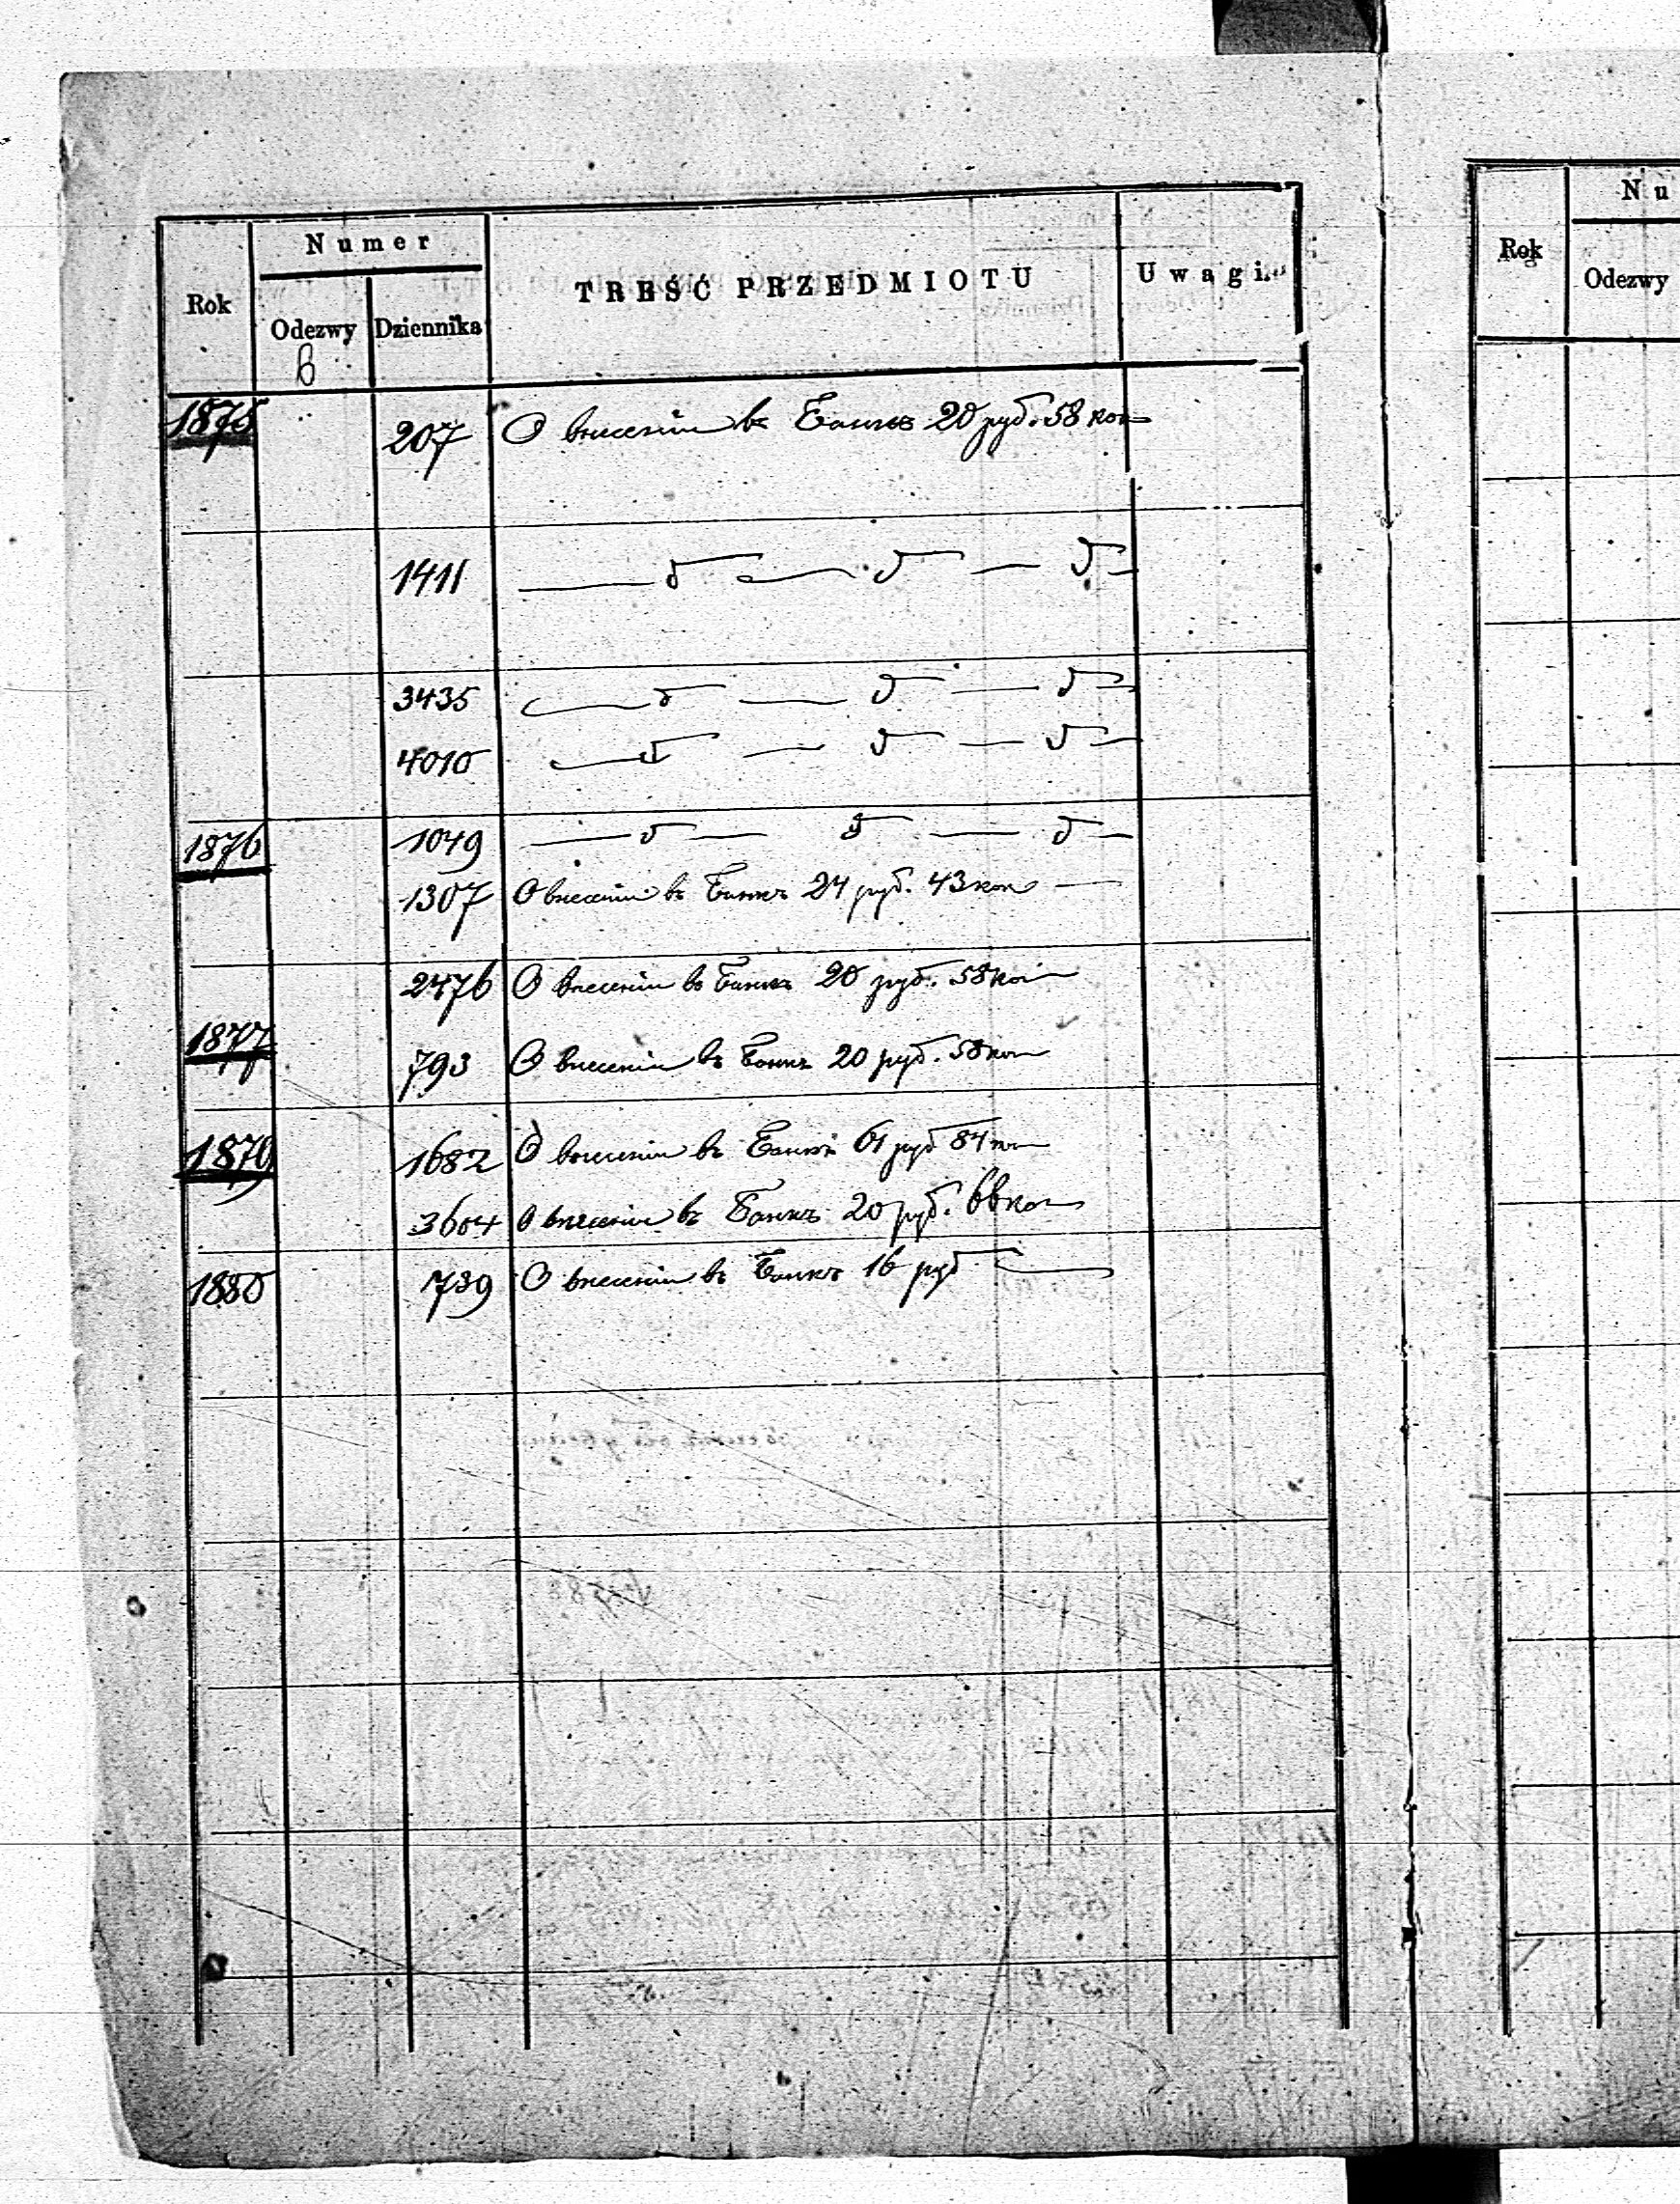 Numer
Rok Odezwy Dziennika TREŚĆ PRZEDMIOTU Uwagi
1875 207 О внесенiи въ Банкъ 20 руб. 58 коп
1411
3435
4010
1876 1049
1307 О внесенiи въ Банкъ 24 руб. 43 коп
2476 О внесенiи въ Банкъ 20 руб. 58 коп
1877 793 О внесенiи въ Банкъ 20 руб. 58 коп
1879 1682 О внесенiи въ Банкъ 61 руб 84 коп
3604 О внесенiи въ Банкъ 20 руб. 66 коп
1880 739 О внесенiи въ Банкъ 16 руб
Nu
Rok Odezwy